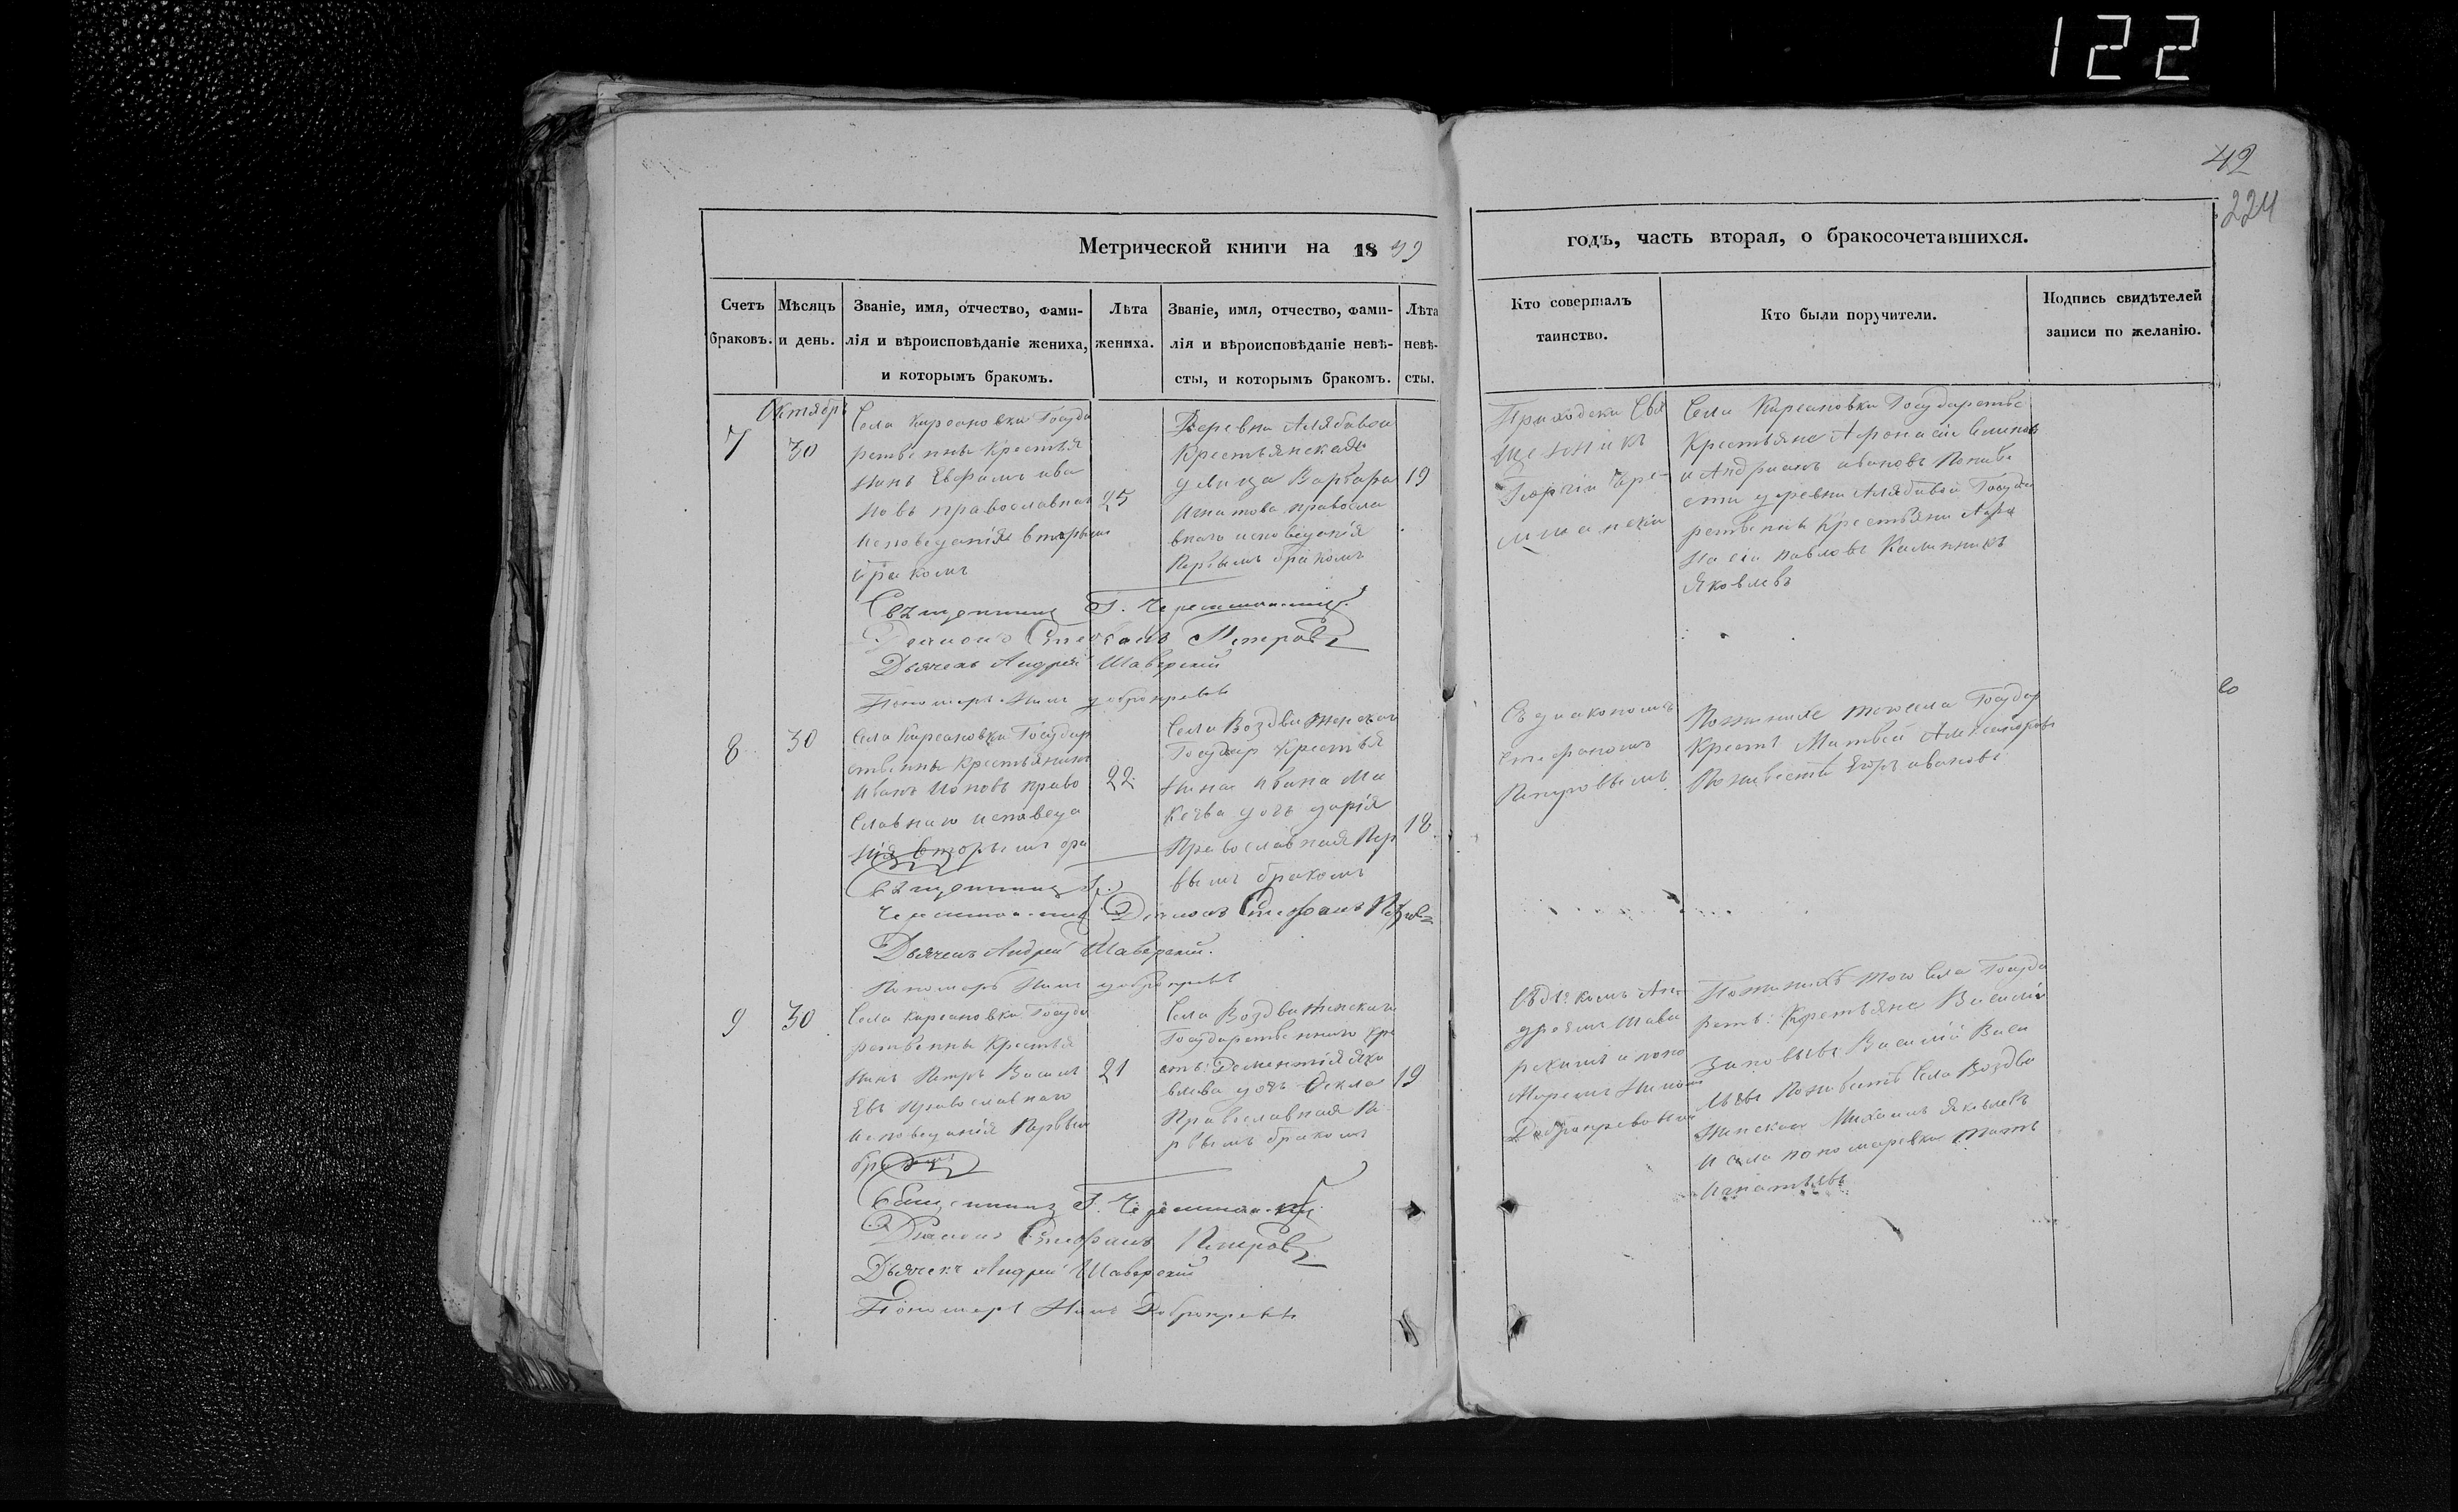 122
42
224
Метрической книги на 1849
годъ, часть вторая, о бракосочетавшихся.
Счетъ браковъ.
Мѣсяцъ и день.
Званіе, имя, отчество, фами-
лія и вѣроисповѣданіе жениха,
и которымъ бракомъ.
Лѣта
жениха.
Званіе, имя, отчество, фами-
лія и вѣроисповѣданіе невѣ-
сты, и которымъ бракомъ.
Лѣта
невѣ-
сты.
Кто совершалъ
таинство.
Кто были поручители.
Подпись свидѣтелей
записи по желанію.
Октябрь
7
30
Села Кирсановки Госуда
рственны Крестья
нинъ Ефимъ Ива
новъ православнаго
исповеданія вторымъ
бракомъ
25
Деревни Алябавой
Крестьянская де
вица Варвара
Игнатова правосла
внаго исповеданія
Первымъ бракомъ
19
Приходски Свя
щенникъ
Георгій
Села Кирсановки Государстве
Крестьяне Афонасій Семиновъ
и Андриянъ Ивановъ Понивѣ
сти деревни Алябавой Госуда
рственны Крестьяни Афа
насіи Павловъ Калинникъ
Яковлевъ
Священникъ Г.
Діаконъ Стефанъ Петровъ
Дьячекъ Андрей Шаверскій
Пономарь Нилъ
8
30
Села Кирсановки Государ
ственны Крестьянинъ
Иванъ православнаго исповеда
нія вторымъ бра
22
Села Воздвиженскаго
Государ Крестья
нина Ивана
дочь Дарія
Православная Пер
вымъ бракомъ
18
Съ діакономъ
Стефаномъ
Петровымъ
Пожинихе тогосела Государ
Крест Матвей Александровъ
Поневестѣ Егоръ Ивановъ
Священникъ Г.
Діаконъ Стефанъ Петровъ
Дьячекъ Андрей Шаверскій.
Пономарь Нилъ
9
30
Села Кирсановки Госуда
рственны Крестья
нинъ Петръ Василь
евъ Православнаго
Исповеданія Первымъ
бра
21
Села Воздвиженскаго
Государственнаго Кре
ст: Дементія Яко
влева дочь Фекла
Православная Пе
рвымъ бракомъ
19
Съ дьякомъ Ан
дреемъ Шаве
рскимъ и поно
маремъ Ниломъ
Пожинихѣ того Села Госуда
рств: Крестьяне Василій
Василій Васи
льевъ Поневестѣ Села Воздви
женскаго Михаилъ Яковлевъ
и села Пономаревки
Игнатьевъ
Священникъ Г.
Діаконъ Стефанъ Петровъ
Дьячекъ Андрей Шаверскій
Пономарь Нилъ